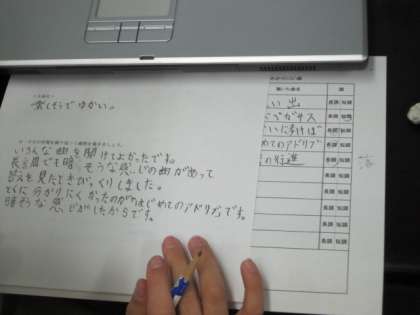 楽しそうで ゆかい。
いろんな曲を聞けてよかったです。
長調でも暗そうな感じの曲があって
答えを見たときびっくりしました。
とくに分かりにくかったのが「はじめてのアドリブ」です。
暗そうな感じがしたからです。
い出
ペガサス
いに歩けば
めてのアドリブ
の行進
長調 短調
長調 短調
長調 短調
長調 短調
長調 短調
長調 短調
長調 短調
長調 短調